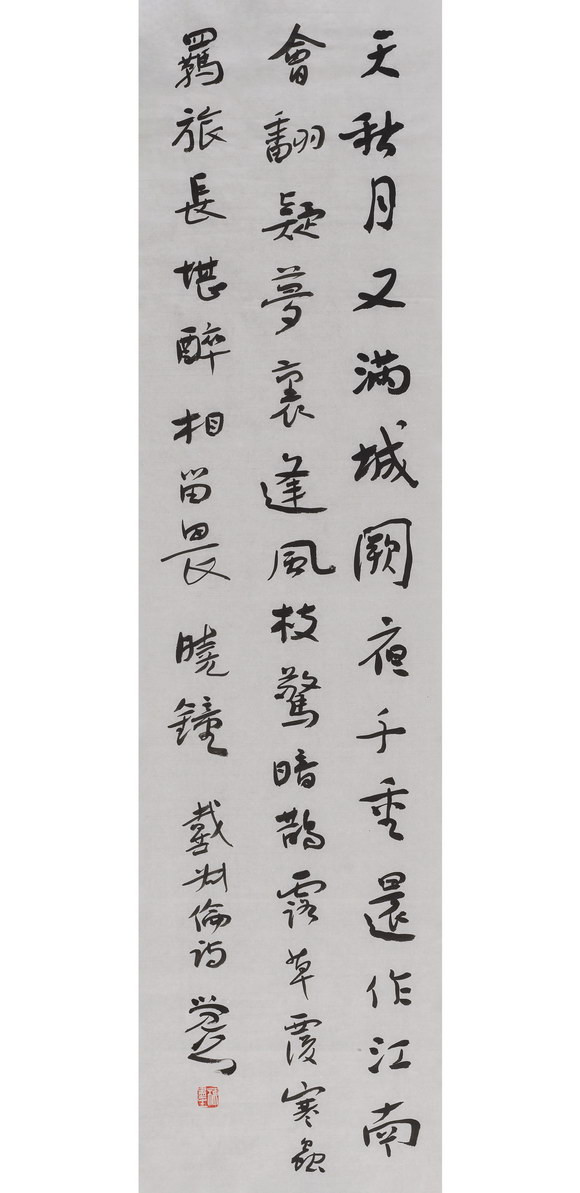 天秋月又滿城闕夜千重還作江南
會翻疑夢裏逢風枝驚暗鵲露草覆寒蟲
羈旅長堪醉相留畏曉鐘 戴叔倫詩